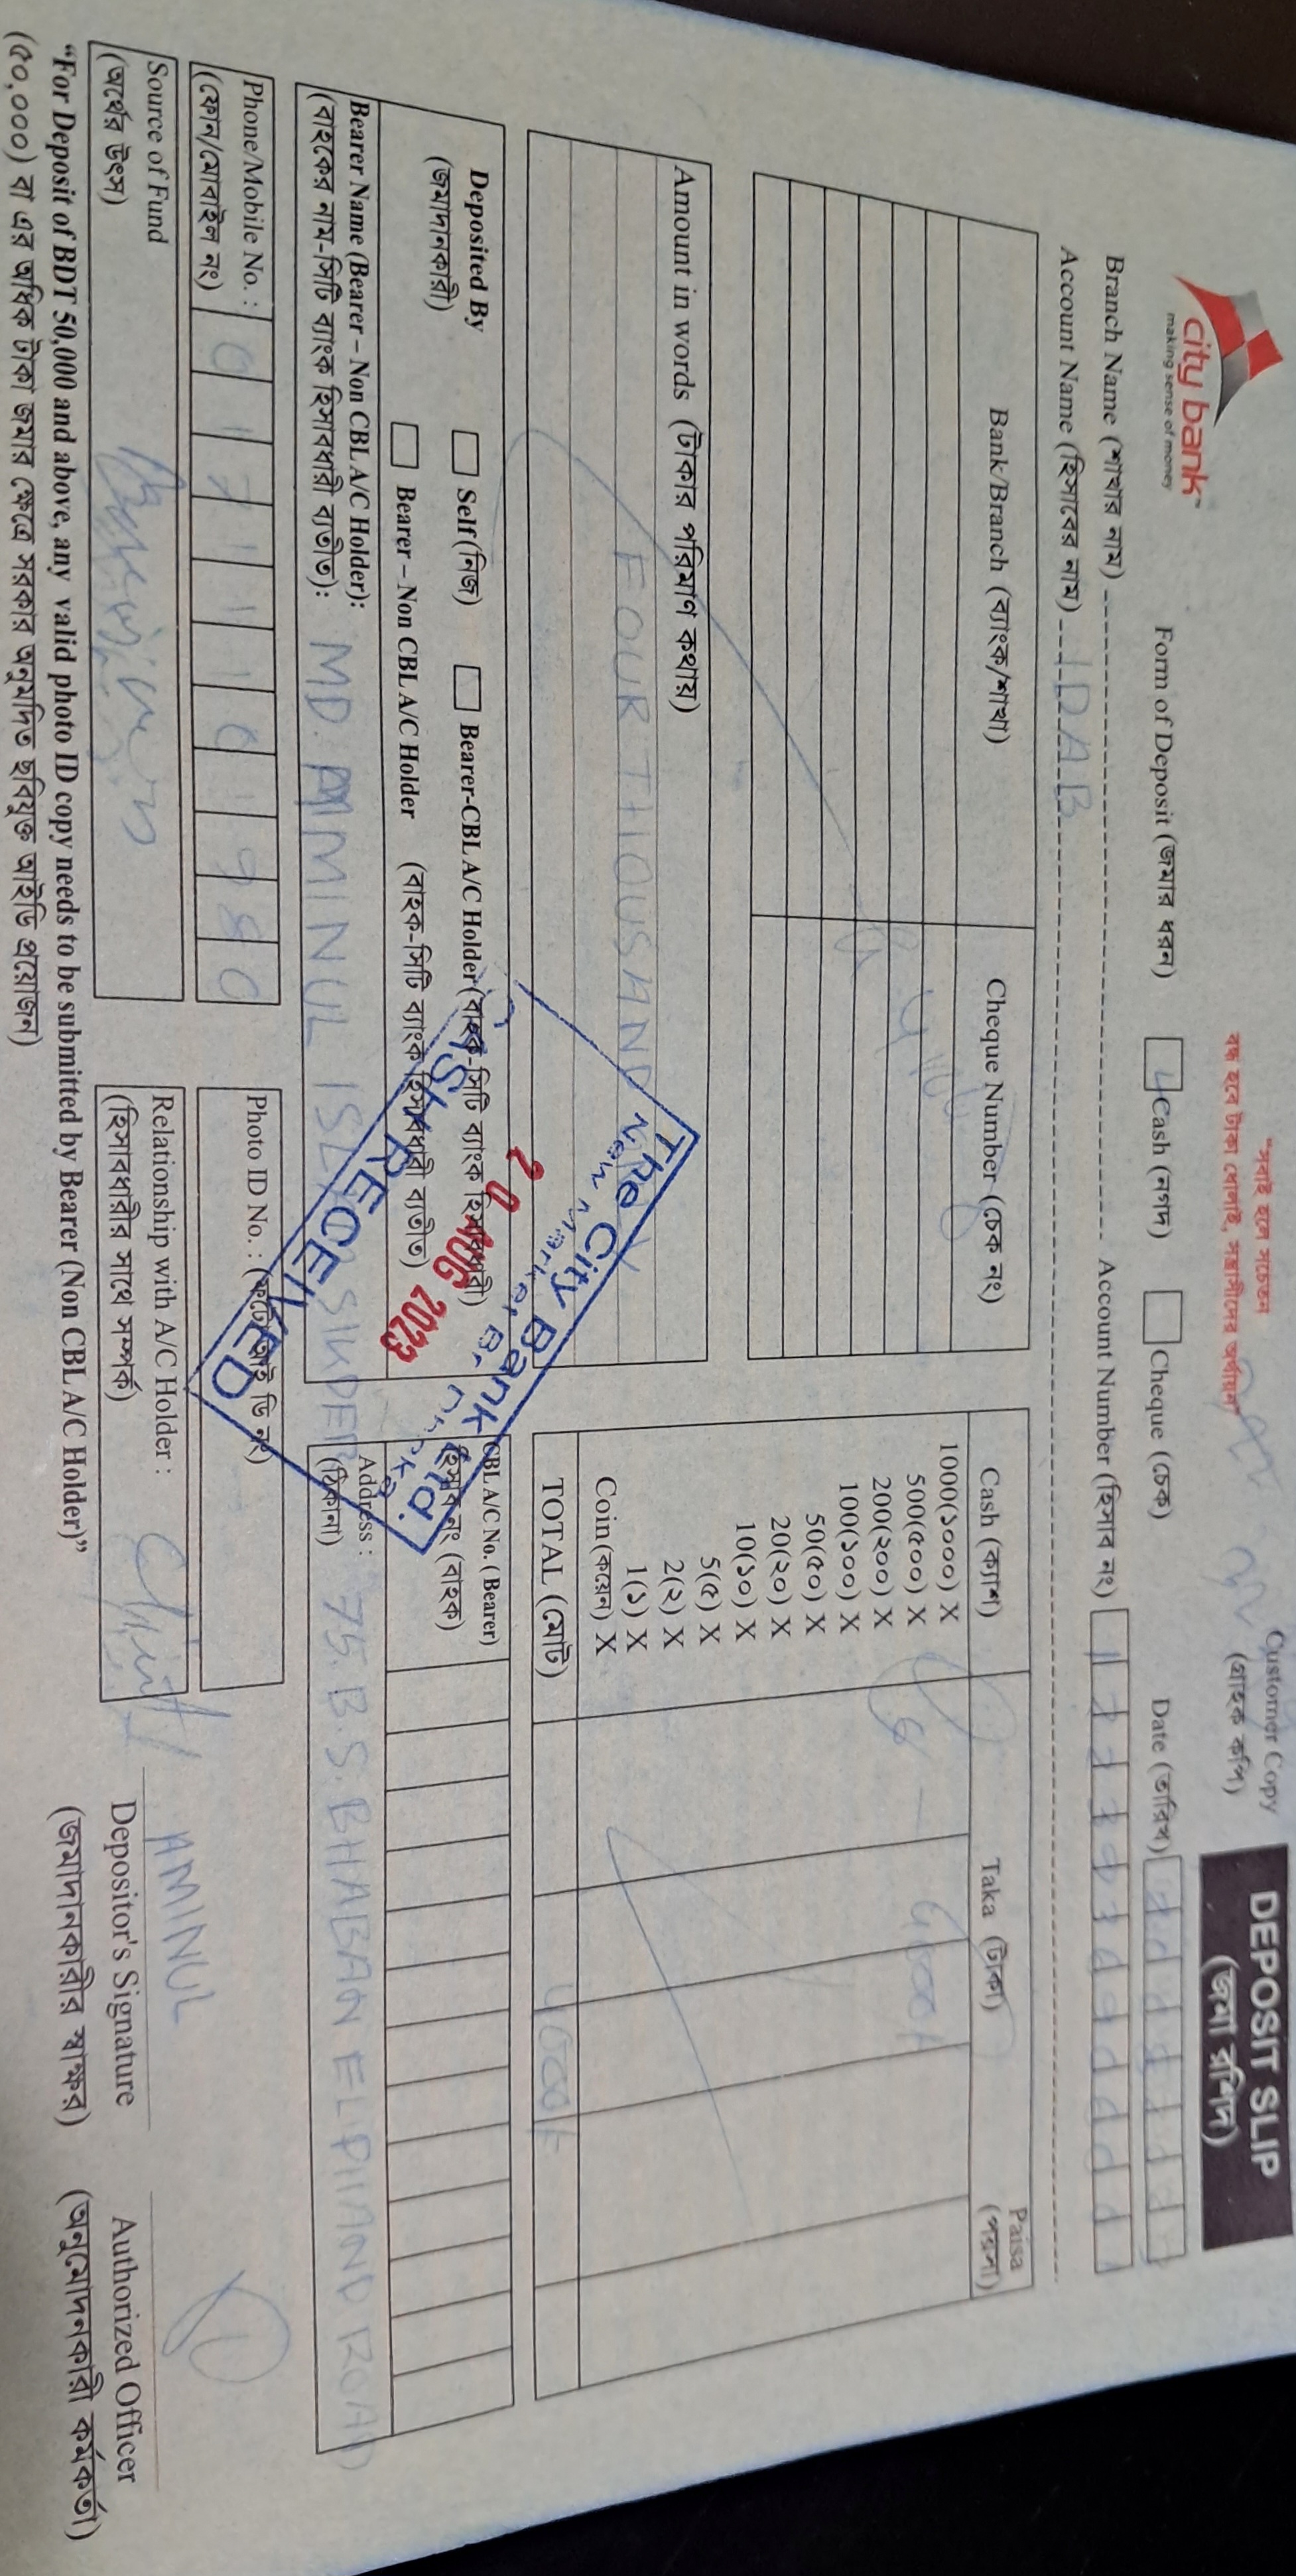 city bank™
making sense of money
"সবাই হলে সচেতন
বন্ধ হবে টাকা ধোলাই, সন্ত্রাসীদের অর্থায়ন"
Customer Copy
(গ্রাহক কপি)
DEPOSIT SLIP
(জমা রশিদ)
Form of Deposit (জমার ধরন) Cash (নগদ) Cheque (চেক) Date (তারিখ)
Branch Name (শাখার নাম) Account Number (হিসাব নং)
Account Name (হিসাবের নাম) IDAB
Bank/Branch (ব্যাংক/শাখা) Cheque Number (চেক নং)
Cash (ক্যাশ) Taka (টাকা) Paisa (পয়সা)
1000(১০০০) X
500(৫০০) X
200(২০০) X
100(১০০) X
50(৫০) X
20(২০) X
10(১০) X
5(৫) X
2(২) X
1(১) X
Coin (কয়েন) X
TOTAL (মোট) 4000/-
Amount in words (টাকার পরিমাণ কথায়)
FOUR THOUSAND
The City Bank Ltd.
New Market Br
20 AUG 2023
CASH RECEIVED
Deposited By
(জমাদানকারী)
Self (নিজ) Bearer-CBL A/C Holder (বাহক-সিটি ব্যাংক হিসাবধারী)
Bearer – Non CBL A/C Holder (বাহক-সিটি ব্যাংক হিসাবধারী ব্যতীত)
CBL A/C No. ( Bearer)
হিসাব নং (বাহক)
Bearer Name (Bearer – Non CBL A/C Holder):
(বাহকের নাম-সিটি ব্যাংক হিসাবধারী ব্যতীত): MD. AMINUL ISLAM SIKDER
Address :
(ঠিকানা) 75. B.S. BHABAN ELPHAND ROAD
Phone/Mobile No. :
(ফোন/মোবাইল নং)
Photo ID No. : (ফটো আই ডি নং)
Source of Fund
(অর্থের উৎস)
Relationship with A/C Holder :
(হিসাবধারীর সাথে সম্পর্ক)
AMINUL
Depositor's Signature
(জমাদানকারীর স্বাক্ষর)
Authorized Officer
(অনুমোদনকারী কর্মকর্তা)
"For Deposit of BDT 50,000 and above, any valid photo ID copy needs to be submitted by Bearer (Non CBL A/C Holder)"
(৫০,০০০) বা এর অধিক টাকা জমার ক্ষেত্রে সরকার অনুমদিত ছবিযুক্ত আইডি প্রয়োজন)